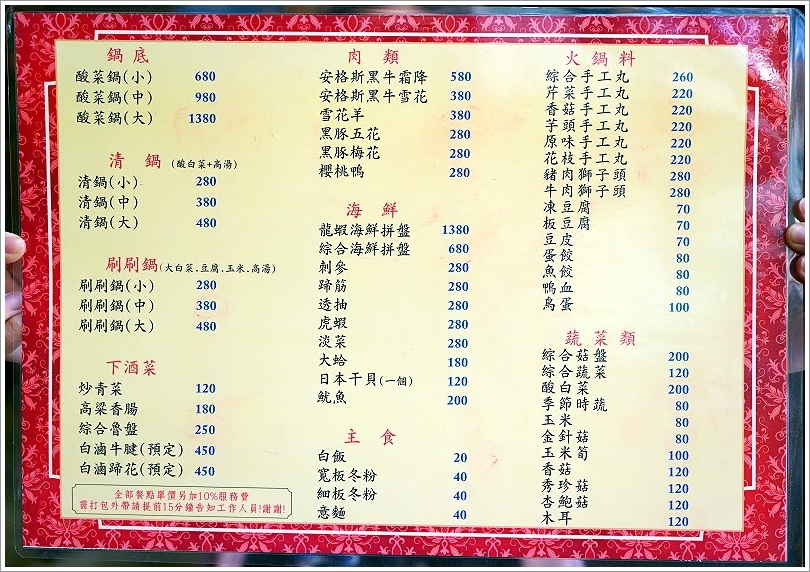 鍋底
酸菜鍋(小) 680
酸菜鍋(中) 980
酸菜鍋(大) 1380
清鍋 (酸白菜+高湯)
清鍋(小) 280
清鍋(中) 380
清鍋(大) 480
刷刷鍋(大白菜.豆腐.玉米.高湯)
刷刷鍋(小) 280
刷刷鍋(中) 380
刷刷鍋(大) 480
下酒菜
炒青菜 120
高粱香腸 180
綜合魯盤 250
白滷牛腱(預定) 450
白滷蹄花(預定) 450
全部餐點單價另加10%服務費
需打包外帶請提前15分鐘告知工作人員!謝謝!
肉類
安格斯黑牛霜降 580
安格斯黑牛雪花 380
雪花羊 380
黑豚五花 280
黑豚梅花 280
櫻桃鴨 280
海鮮
龍蝦海鮮拼盤 1380
綜合海鮮拼盤 680
刺參 280
蹄筋 280
透抽 280
虎蝦 280
淡菜 280
大蛤 180
日本干貝(一個) 120
魷魚 200
主食
白飯 20
寬板冬粉 40
細板冬粉 40
意麵 40
火鍋料
綜合手工丸 260
芹菜手工丸 220
香菇手工丸 220
芋頭手工丸 220
原味手工丸 220
花枝手工丸 220
豬肉獅子頭 280
牛肉獅子頭 280
凍豆腐 70
板豆腐 70
豆皮 70
蛋餃 80
魚餃 80
鴨血 80
鳥蛋 100
蔬菜類
綜合菇盤 200
綜合蔬菜 120
酸白菜 200
季節時蔬 80
玉米 80
金針菇 80
玉米筍 100
香菇 120
秀珍菇 120
杏鮑菇 120
木耳 120